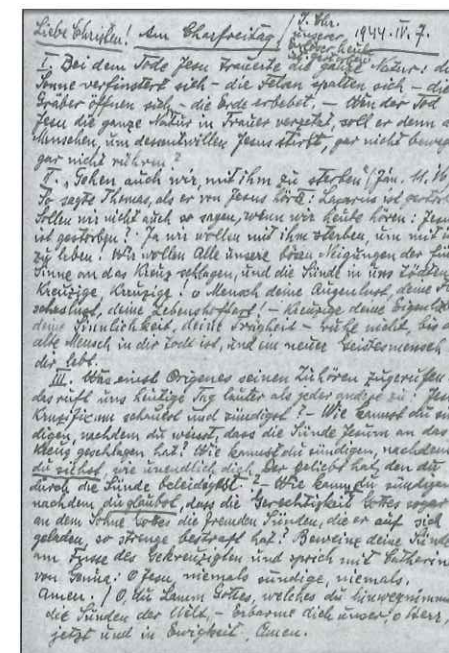 Liebe Christen! Am Charfreitag / J. Chr. 1944.IV.7.
unserer
Erlöser heute
gestorben
I. Bei dem Tode Jesu trauerte die ganze Natur: di
Sonne verfinstert sich - die Felsen spalten sich - die
Gräber öffnen sich - die Erde erbebet. - Wen der Tod
Jesu die ganze Natur in Trauer versetzt, soll er denn d
Menschen, um dessentwillen Jesus stirbt, gar nicht beweg
gar nicht rühren?
II. "Gehen auch wir, mit ihm zu sterben" (Ján. 11. 16
So sagte Thomas, als er von Jesus hörte: Lazarus ist gestorb
Sollen wir nicht auch so sagen, wenn wir heute hören: Jesus
ist gestorben? Ja wir wollen mit ihm sterben, um mit i
zu leben! Wir wollen Alle unsere bösen Neigungen der fün
Sinne an das Kreuz schlagen, und die Sünde in uns tödten
Kreuzige Kreuzige! o Mensch deine Augenlust, deine F
scheslust, deine Lebenshoffart! - Kreuzige deine Eigenlieb
deine Sinnlichkeit, deine Trägheit - ruhe nicht, bis d
alte Mensch in dir todt ist, und ein neuer Geistesmensch
dir lebt.
III. Was einst Origenes seinen Zuhören zugerufen
das ruft uns heutige Tag lauter als jeder andre zu: Jesu
Kruzifixum schaust und sündigst? - Wie kannst du sün
digen, nachdem du weisst, dass die Sünde Jesum an das
Kreuz geschlagen hat? Wie kannst du sündigen, nachdem
du siehst, wie unendlich dich Der geliebt hat, den du
durch die Sünde beleidigest? - Wie kannst du sündigen
nachdem du glaubst, dass die Gerechtigkeit Gottes sogar
an dem Sohne Gottes die fremden Sünden, die er auf sich
geladen, so strenge bestraft hat? Beweine deine Sünde
am Fusse des Gekreuzigten und sprich mit Catherin
von Genua: O Jesu niemals sündige, niemals.
Amen. / O du Lamm Gottes, welches du hinwegnimms
die Sünden der Welt, - Erbarme dich unser, o Herr,
jetzt und in Ewigkeit. Amen.